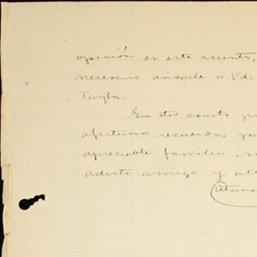 opinión en este asunto,
necesario avisarle á Vd.
Taylor.
Sin otro asunto
afectuosos recuerdos
apreciable familia
adicto amigo y